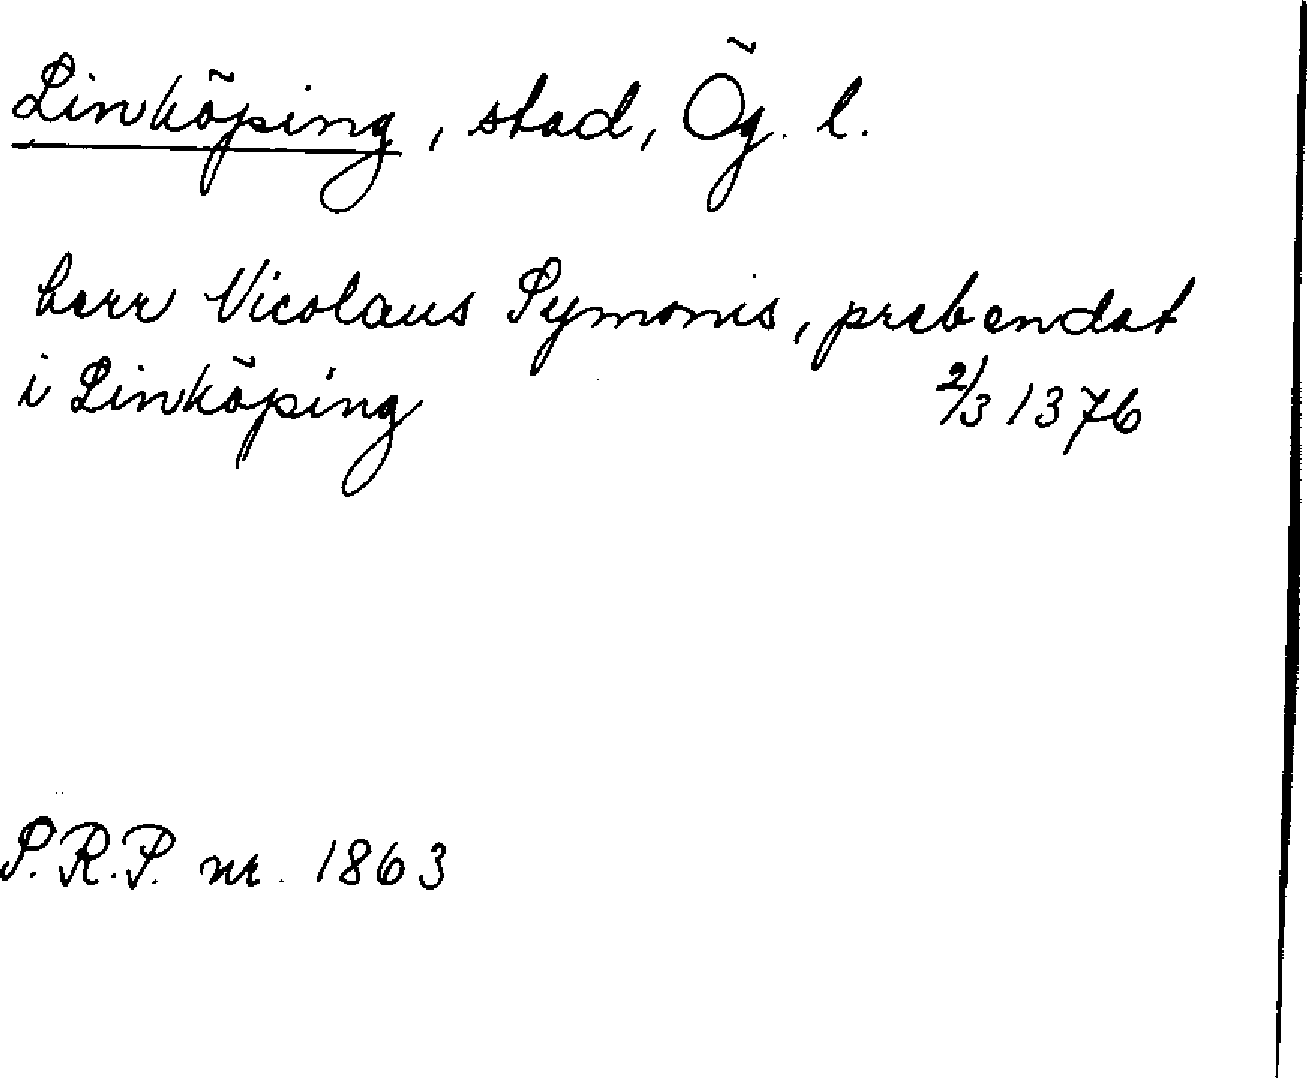 Linköping, stad, Ög. l.
herr Nicolaus Symonis, prebendat
i Linköping 2/3 1376
S.R.P. nr. 1863